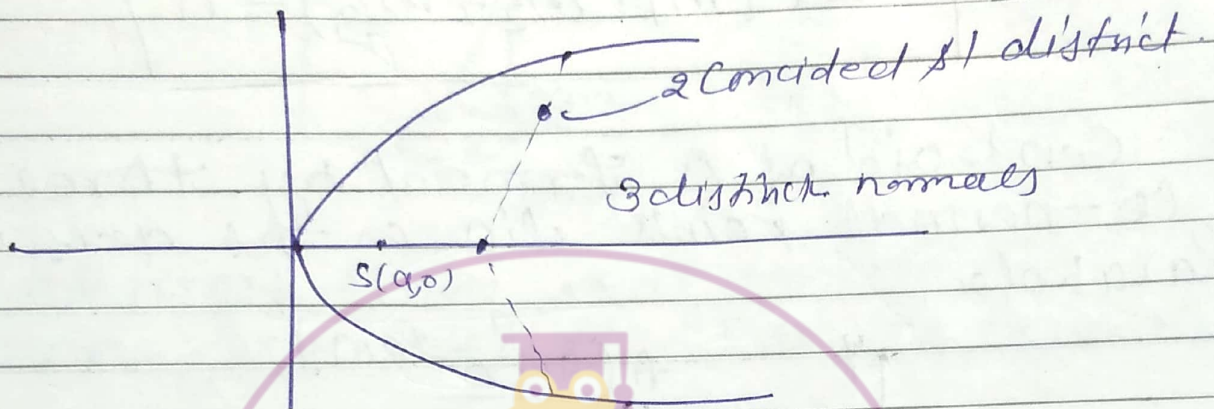 2 Concided & 1 district.
3 distinct normals
S(a,0)